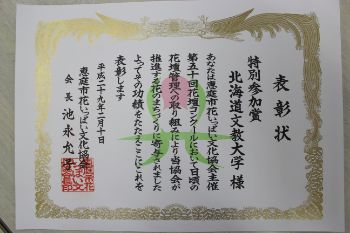 表彰状
特別参加賞
北海道文教大学 様
あなたは恵庭市花いっぱい文化協会主催
第五十回花壇コンクールにおいて日頃の
花壇管理への取り組みにより当協会が
推進する花のまちづくりに寄与されました
よってその功績をたたえここにこれを
表彰します
平成二十九年二月十日
恵庭市花いっぱい文化協会
会長 池永允子